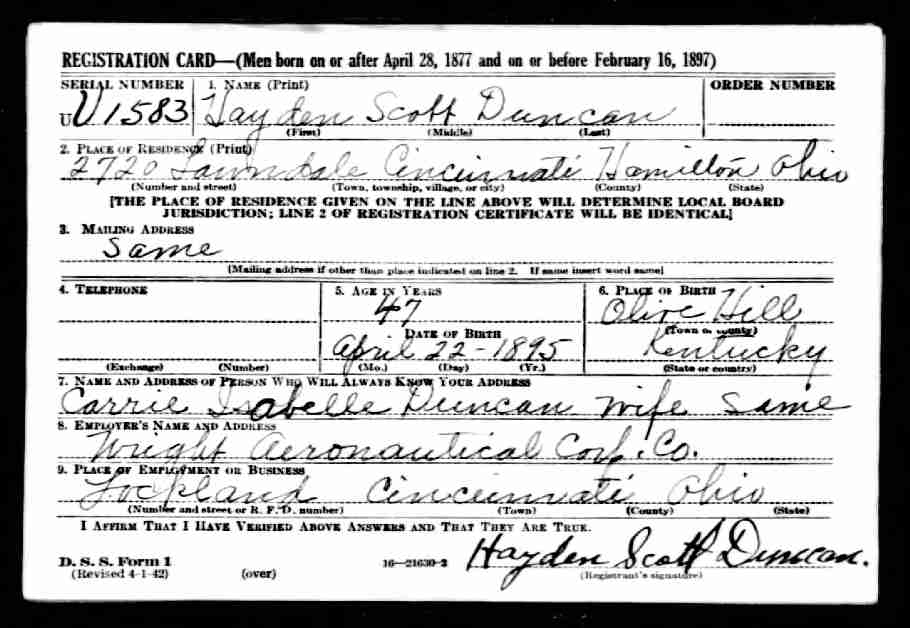 REGISTRATION CARD—(Men born on or after April 28, 1877 and on or before February 16, 1897)
SERIAL NUMBER 1. NAME (Print) ORDER NUMBER
U U1583 Hayden Scott Duncan
(First) (Middle) (Last)
2. PLACE OF RESIDENCE (Print)
2720 Lawndale Cincinnati Hamilton Ohio
(Number and street) (Town, township, village, or city) (County) (State)
[THE PLACE OF RESIDENCE GIVEN ON THE LINE ABOVE WILL DETERMINE LOCAL BOARD
JURISDICTION; LINE 2 OF REGISTRATION CERTIFICATE WILL BE IDENTICAL]
3. MAILING ADDRESS
Same
[Mailing address if other than place indicated on line 2. If same insert word same]
4. TELEPHONE 5. AGE IN YEARS 6. PLACE OF BIRTH
47 Olive Hill
DATE OF BIRTH (Town or county)
April 22-1895 Kentucky
(Exchange) (Number) (Mo.) (Day) (Yr.) (State or country)
7. NAME AND ADDRESS OF PERSON WHO WILL ALWAYS KNOW YOUR ADDRESS
Carrie Isabelle Duncan Wife Same
8. EMPLOYER'S NAME AND ADDRESS
Wright Aeronautical Corp. Co.
9. PLACE OF EMPLOYMENT OR BUSINESS
Lockland Cincinnati Ohio
(Number and street or R. F. D. number) (Town) (County) (State)
I AFFIRM THAT I HAVE VERIFIED ABOVE ANSWERS AND THAT THEY ARE TRUE.
Hayden Scott Duncan.
D. S. S. Form 1 16—21630-2
(Revised 4-1-42) (over) (Registrant's signature)